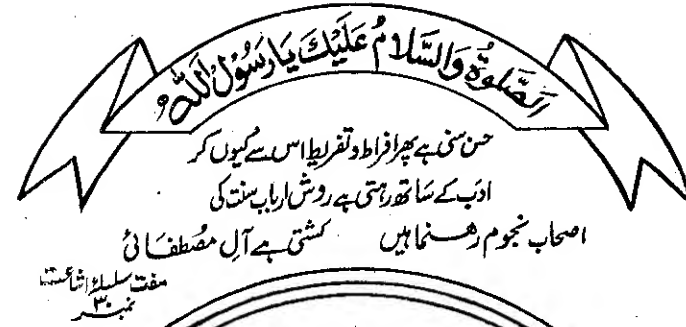 الصَّلٰوۃُ وَالسَّلَامُ عَلَیْكَ یَا رَسُوْلَ اللّٰهِ
حسن سنی ہے پھر افراط و تفریط اس سے کیوں کر
ادب کے ساتھ رہتی ہے روش ارباب سنت کی
اصحاب نجوم رہنما ہیں کشتی ہے آلِ مصطفائی
مفت سلسلۂ اشاعت
نمبر ۳۰